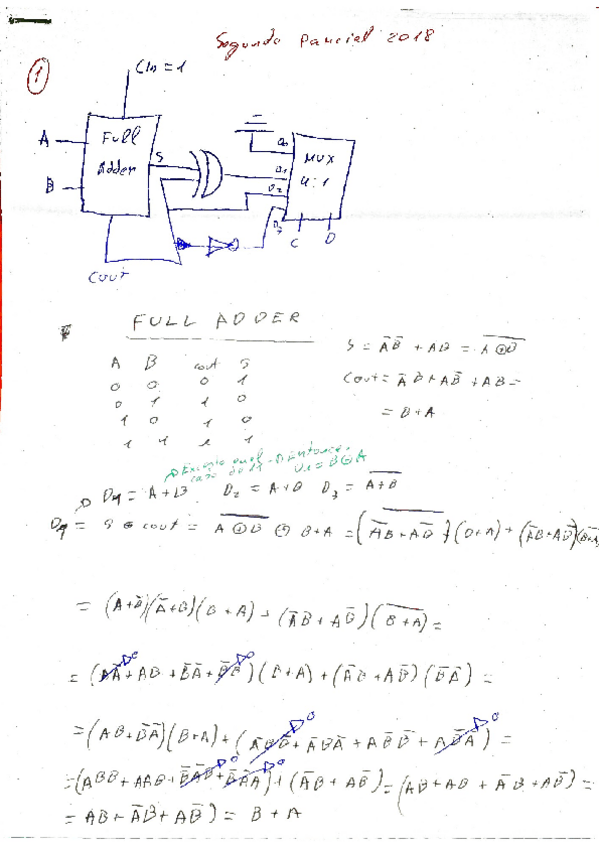 Segundo Parcial 2018
1
Cin = 1
A
Full
Adder
B
S
Cout
D0
D1
D2
D3
MUX
4:1
C
D
FULL ADDER
A B cout S
0 0 0 1
0 1 1 0
1 0 1 0
1 1 1 1
S = A̅B̅ + AB = \overline{A⊕B}
Cout = A̅B + AB̅ + AB =
= B + A
Excepto en el caso de 11 → Entonces
D1 = B⊕A
D1 = A + B D2 = A + B D3 = \overline{A+B}
D1 = S ⊕ cout = \overline{A⊕B} ⊕ B+A = (\overline{A̅B + AB̅})(B+A) + (A̅B + AB̅)(\overline{B+A})
= (A+B̅)(A̅+B)(B+A) + (A̅B + AB̅)(\overline{B+A}) =
= (AA̅ + AB + B̅A̅ + B̅B)(B+A) + (A̅B + AB̅)(B̅A̅) =
= (AB + B̅A̅)(B+A) + (
) =
= (ABB + AAB + B̅A̅B + B̅A̅A) + (A̅B + AB̅) = (AB + AB + A̅B + AB̅) =
= AB + A̅B + AB̅) = B + A